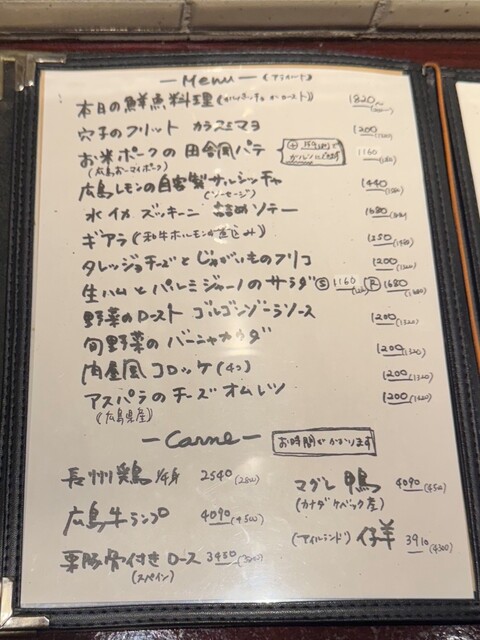 ーMenuー (アラカルト)
本日の鮮魚料理 (カルパッチョ か ロースト) 1820〜
穴子のフリット カラスミマヨ 1200 (1320)
お米ポークの 田舎風パテ 1160
(広島お〜マイポーク)
広島レモンの自家製サルシッチャ 1440
(ソーセージ)
水イカ ズッキーニ 詰め ソテー 1680
ギアラ (和牛ホルモンの煮込み) 1350
タレッジョチーズと じゃがいものフリコ 1200 (1320)
生ハムと パルミジャーノの サラダ Ⓢ 1160 Ⓡ 1680
野菜のロースト ゴルゴンゾーラソース 1200 (1320)
旬野菜の バーニャカウダ 1200 (1320)
肉屋風 コロッケ (4つ) 1200 (1320)
アスパラの チーズ オムレツ 1200 (1320)
(広島県産)
ーCarneー お時間が かかります
長州鶏 1/4身 2540 (2800)
広島牛ランプ 4090 (4500)
栗豚骨付き ロース 3450
(スペイン)
マグレ 鴨 4090 (4500)
(カナダ ケベック産)
(アイルランド) 仔羊 3910 (4300)